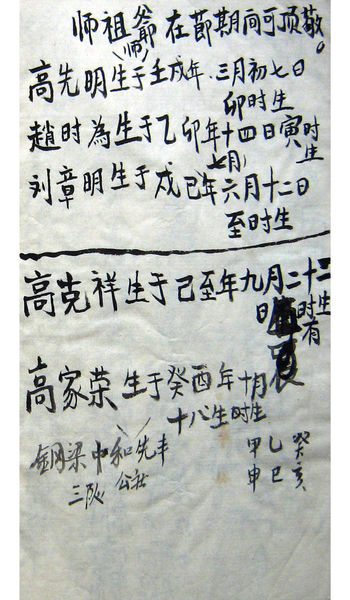 师祖爷在節期间可顶敬。
(师)
高先明生于壬戌年三月初七日
卯时生
趙时為生于乙卯年十四日寅时生
七月
刘章明生于戊巳年六月十二日
至时生
高克祥生于己至年九月二十二
日 时生
有
高家荣生于癸酉年十月
十八生时生
铜梁中和先丰
三队 公社
甲乙癸
申巳亥